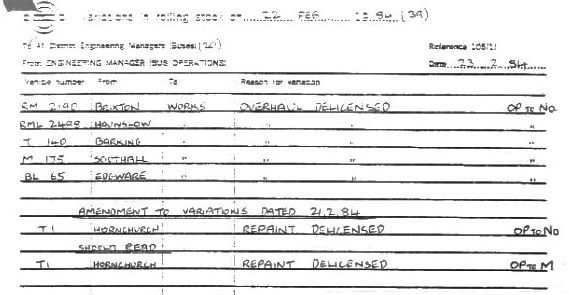 variations in rolling stock on 22 FEB 1984 (39)
To: All District Engineering Managers (Buses) (20)
Reference 108(1)
From: ENGINEERING MANAGER (BUS OPERATIONS)
Date 23.2.84
Vehicle number From To Reason for variation
RM 2190 BRIXTON WORKS OVERHAUL DELICENSED OP to No
RML 2498 HOUNSLOW " " " "
T 140 BARKING " " " "
M 175 SOUTHALL " " " "
BL 65 EDGWARE " " " "
AMENDMENT TO VARIATIONS DATED 21.2.84
T1 HORNCHURCH REPAINT DELICENSED OP to No
SHOULD READ
T1 HORNCHURCH REPAINT DELICENSED OP to M